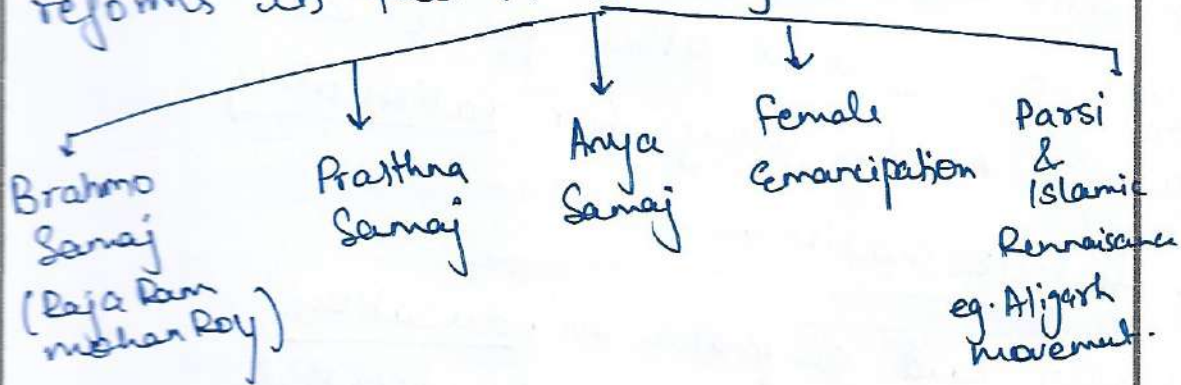 reforms as
Brahmo
Samaj
(Raja Ram
mohan Roy)
Prasthna
Samaj
Arya
Samaj
Female
Emancipation
Parsi
&
Islamic
Rennaisance
eg. Aligarh
movement.